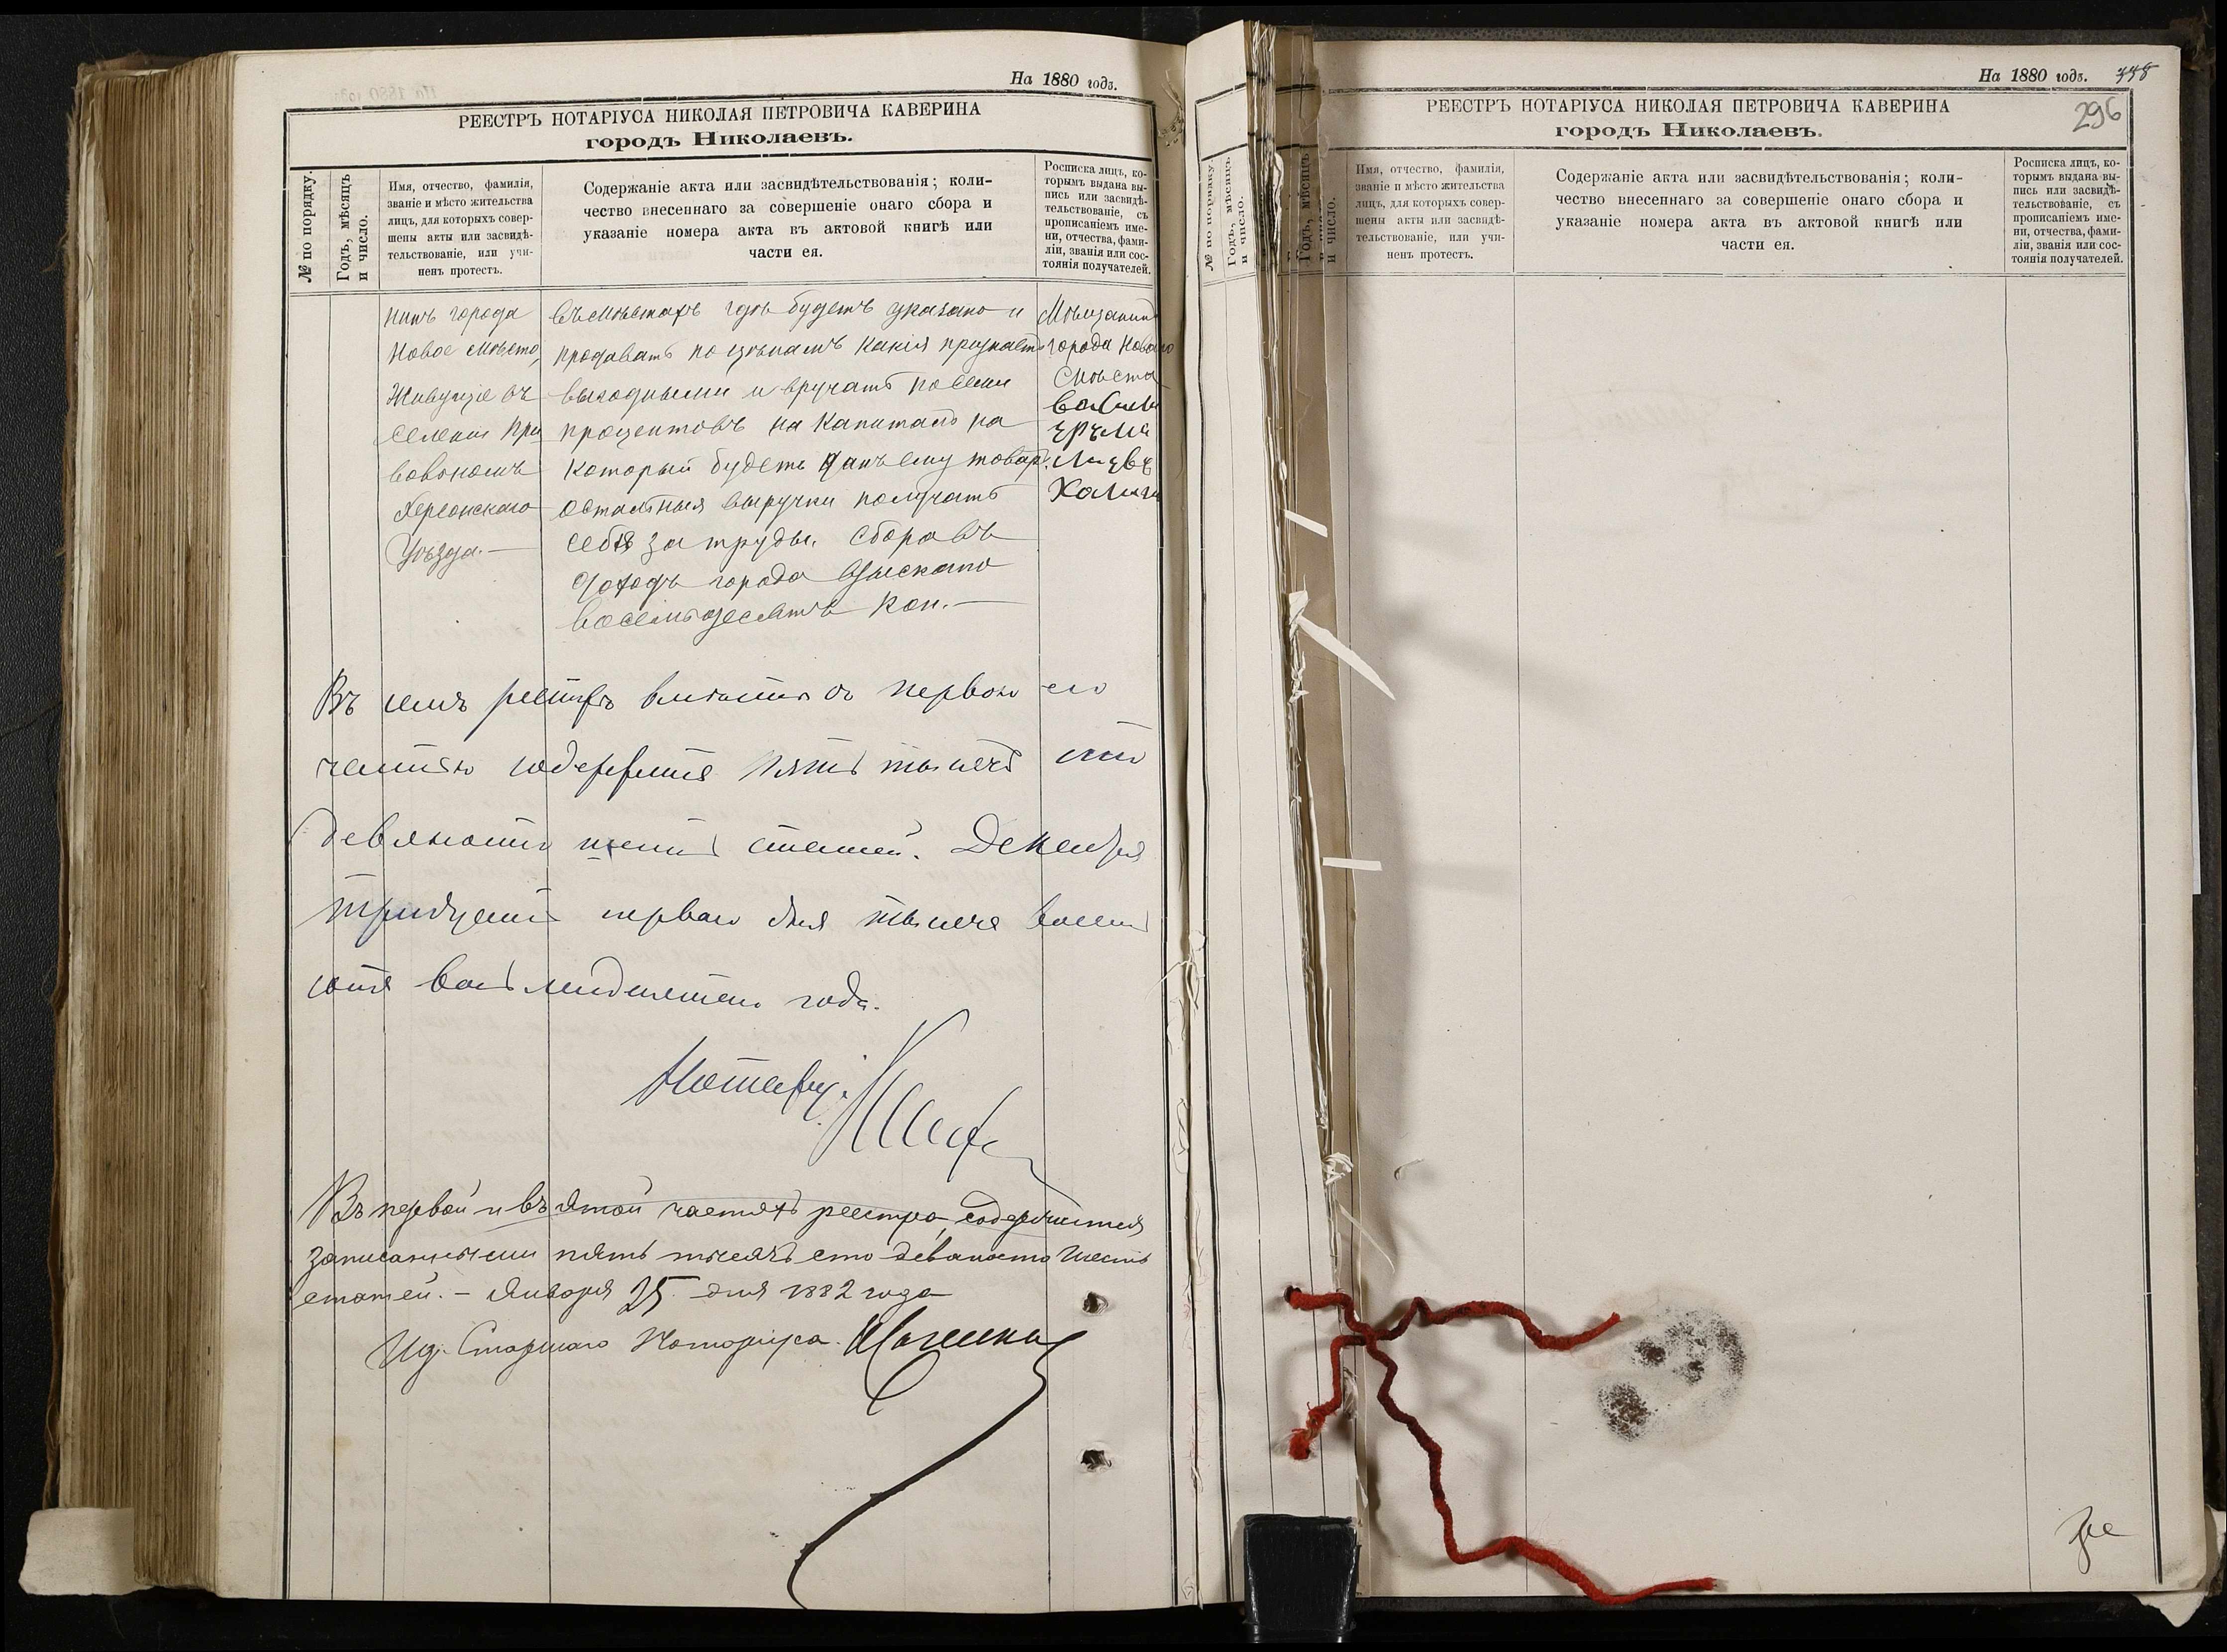 На 1880 годъ.
РЕЕСТРЪ НОТАРІУСА НИКОЛАЯ ПЕТРОВИЧА КАВЕРИНА
городъ Николаевъ.
№ по порядку.
Годъ, мѣсяцъ
и число.
Имя, отчество, фамилія,
званіе и мѣсто жительства
лицъ, для которыхъ совер-
шены акты или засвидѣ-
тельствованіе, или учи-
ненъ протестъ.
Содержаніе акта или засвидѣтельствованія; коли-
чество внесеннаго за совершеніе онаго сбора и
указаніе номера акта въ актовой книгѣ или
части ея.
Росписка лицъ, ко-
торымъ выдана вы-
пись или засвидѣ-
тельствованіе, съ
прописаніемъ име-
ни, отчества, фами-
ліи, званія или сос-
тоянія получателей.
нинъ города
Новое Мѣсто,
живущіе въ
селеніи При
вовономъ
Херсонскаго
Уѣзда.—
въ мѣстахъ гдѣ будетъ указано и
продавать по цѣнамъ какія признаетъ
выгодными и вручать по семи
процентовъ на капиталъ на
который будетъ данъ ему товаръ,
остальныя выручки получать
себѣ за труды. Сбора въ
доходъ города взыскано
восемьдесятъ коп.—
Мѣщанинъ
города Новаго
Мѣста
Въ семъ реестрѣ вмѣстѣ съ первою его
частью содержится пять тысячъ сто
девяносто шесть статей. Декабря
тридцать перваго дня тысяча восемь
сотъ восьмидесятаго года.
Нотаріусъ
Въ первой и въ ятой частяхъ реестра содержится
записанными пять тысячъ сто девяносто шесть
статей. – Января 25 дня 1882 года
Ид. Старшаго Нотаріуса
На 1880 годъ.
296
РЕЕСТРЪ НОТАРІУСА НИКОЛАЯ ПЕТРОВИЧА КАВЕРИНА
городъ Николаевъ.
№ по порядку
Годъ, мѣсяцъ
и число.
Годъ, мѣсяцъ
и число.
Имя, отчество, фамилія,
званіе и мѣсто жительства
лицъ, для которыхъ совер-
шены акты или засвидѣ-
тельствованіе, или учи-
ненъ протестъ.
Содержаніе акта или засвидѣтельствованія; коли-
чество внесеннаго за совершеніе онаго сбора и
указаніе номера акта въ актовой книгѣ или
части ея.
Росписка лицъ, ко-
торымъ выдана вы-
пись или засвидѣ-
тельствованіе, съ
прописаніемъ име-
ни, отчества, фами-
ліи, званія или сос-
тоянія получателей.